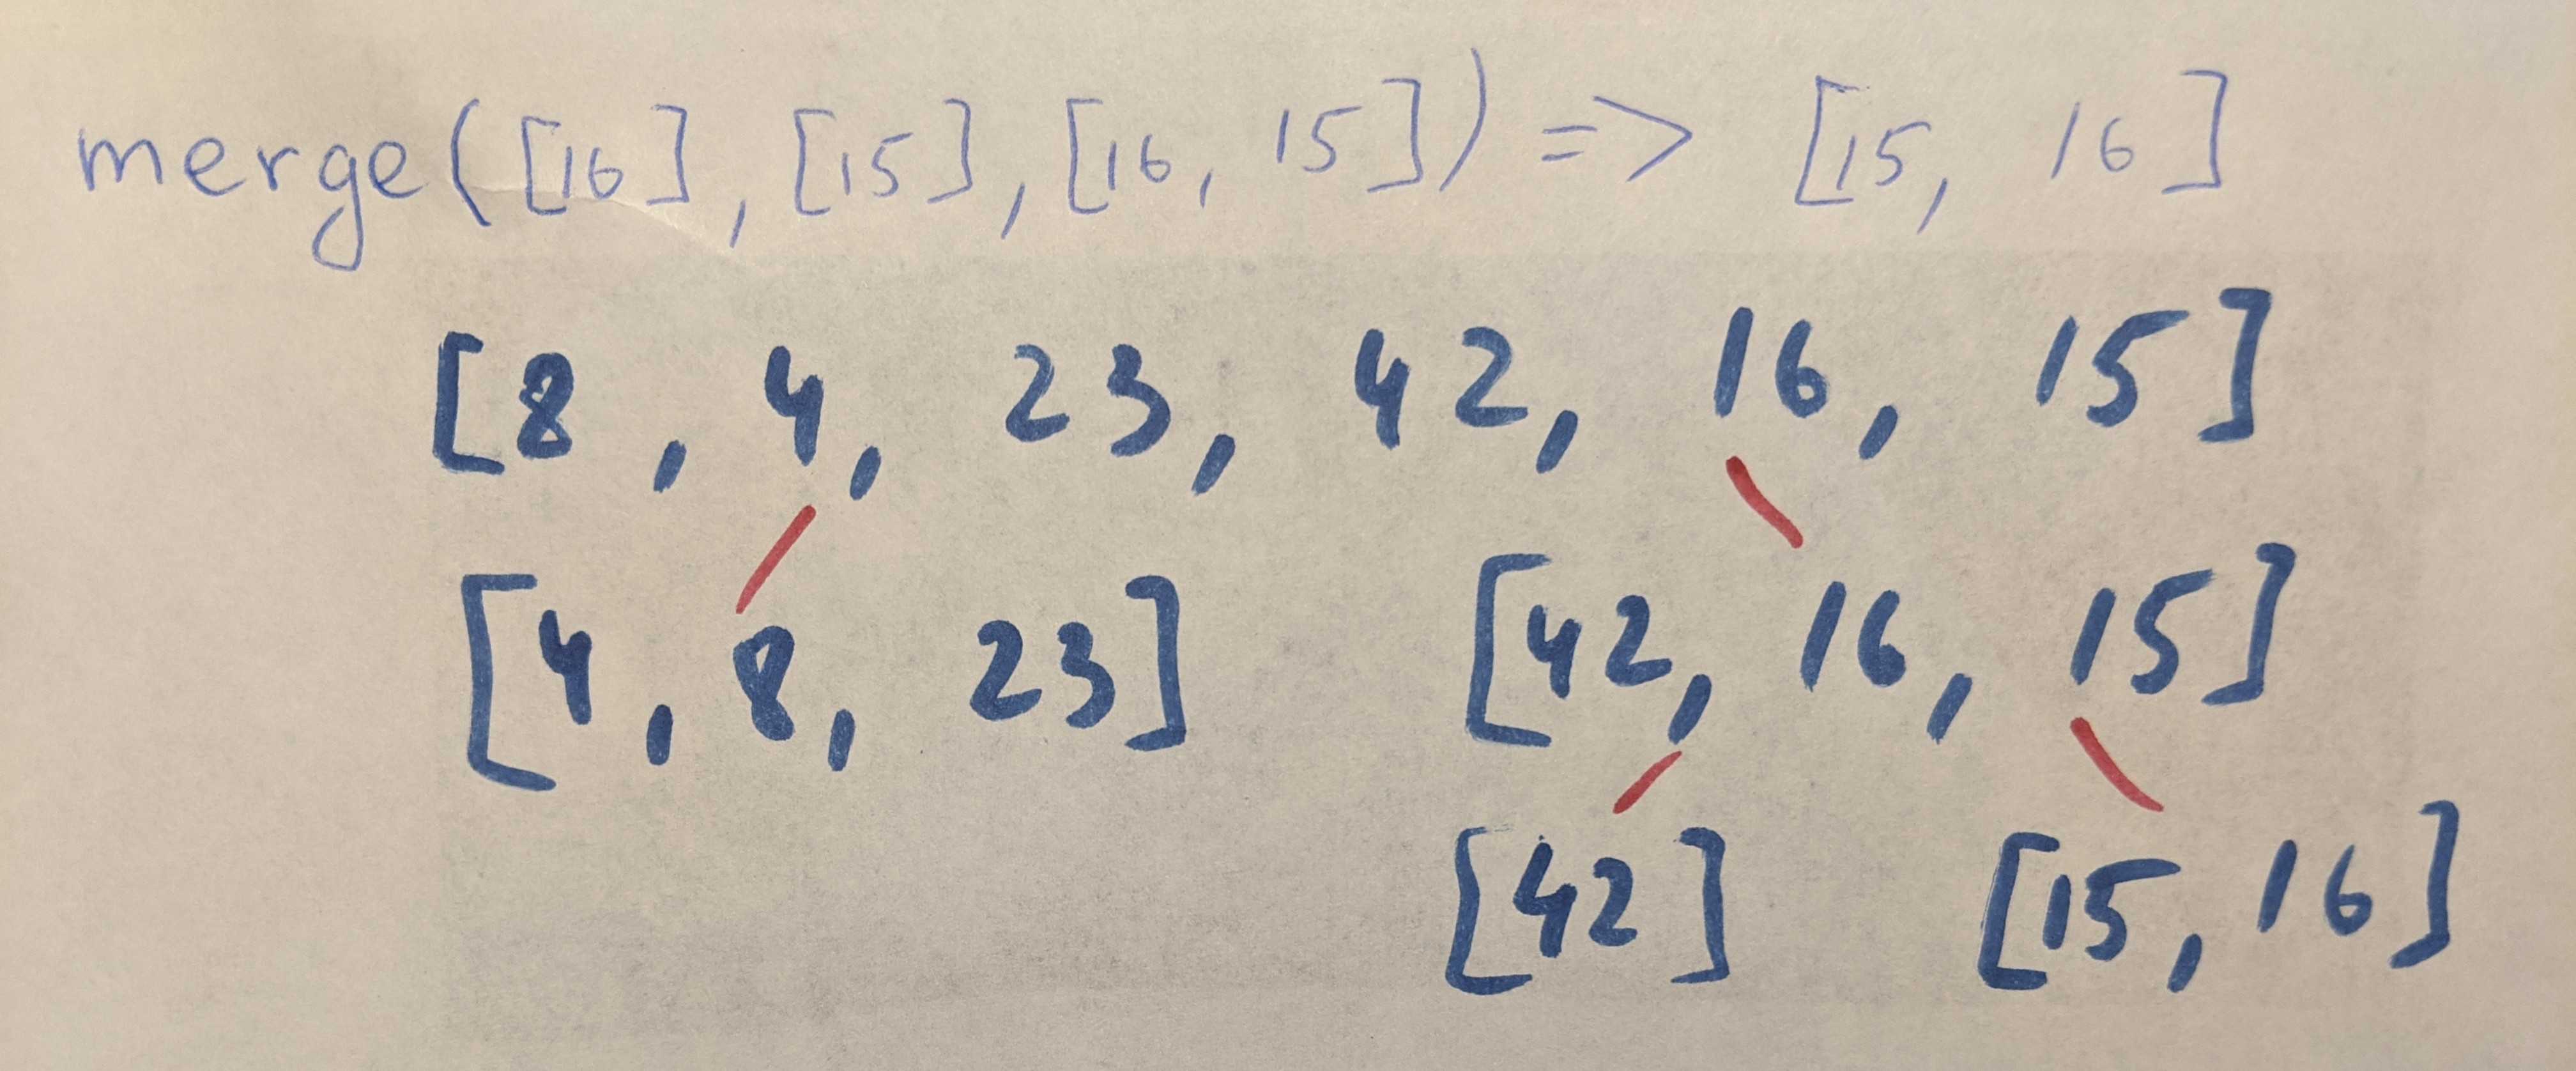 merge([16], [15], [16, 15]) => [15, 16]
[8, 4, 23, 42, 16, 15]
[4, 8, 23] [42, 16, 15]
[42] [15, 16]